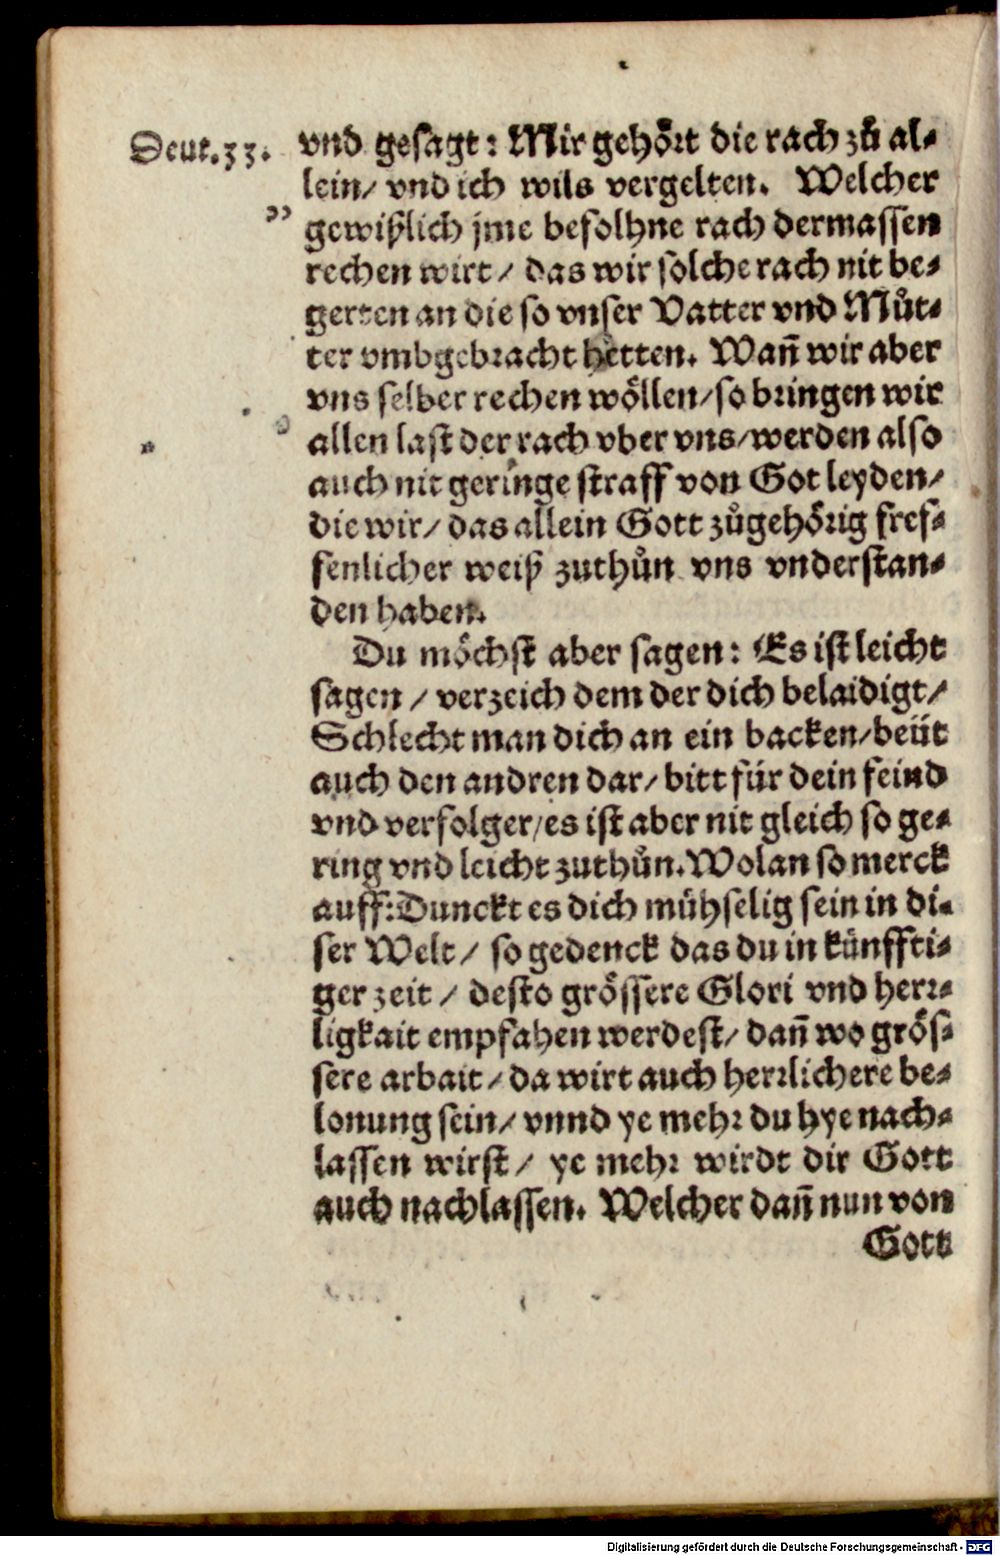 Deut.33. vnd gesagt: Mir gehört die rach zů al-
lein/ vnd ich wils vergelten. Welcher
" gewißlich jme befolhne rach dermassen
rechen wirt/ das wir solche rach nit be-
gerten an die so vnser Vatter vnd Můt-
ter vmbgebracht hetten. Wañ wir aber
vns selber rechen wöllen/so bringen wir
allen last der rach vber vns/werden also
auch nit geringe straff von Got leyden/
die wir/ das allein Gott zůgehörig fref-
fenlicher weiß zuthůn vns vnderstan-
den haben.
Du möchst aber sagen: Es ist leicht
sagen/ verzeich dem der dich belaidigt/
Schlecht man dich an ein backen/beüt
auch den andren dar/ bitt für dein feind
vnd verfolger/es ist aber nit gleich so ge-
ring vnd leicht zuthůn. Wolan so merck
auff: Dunckt es dich mühselig sein in di-
ser Welt/ so gedenck das du in künffti-
ger zeit/ desto grössere Glori vnd herr-
ligkait empfahen werdest/ dañ wo grös-
sere arbait/ da wirt auch herrlichere be-
lonung sein/ vnnd ye mehr du hye nach-
lassen wirst/ ye mehr wirdt dir Gott
auch nachlassen. Welcher dañ nun von
Gott
Digitalisierung gefördert durch die Deutsche Forschungsgemeinschaft - DFG